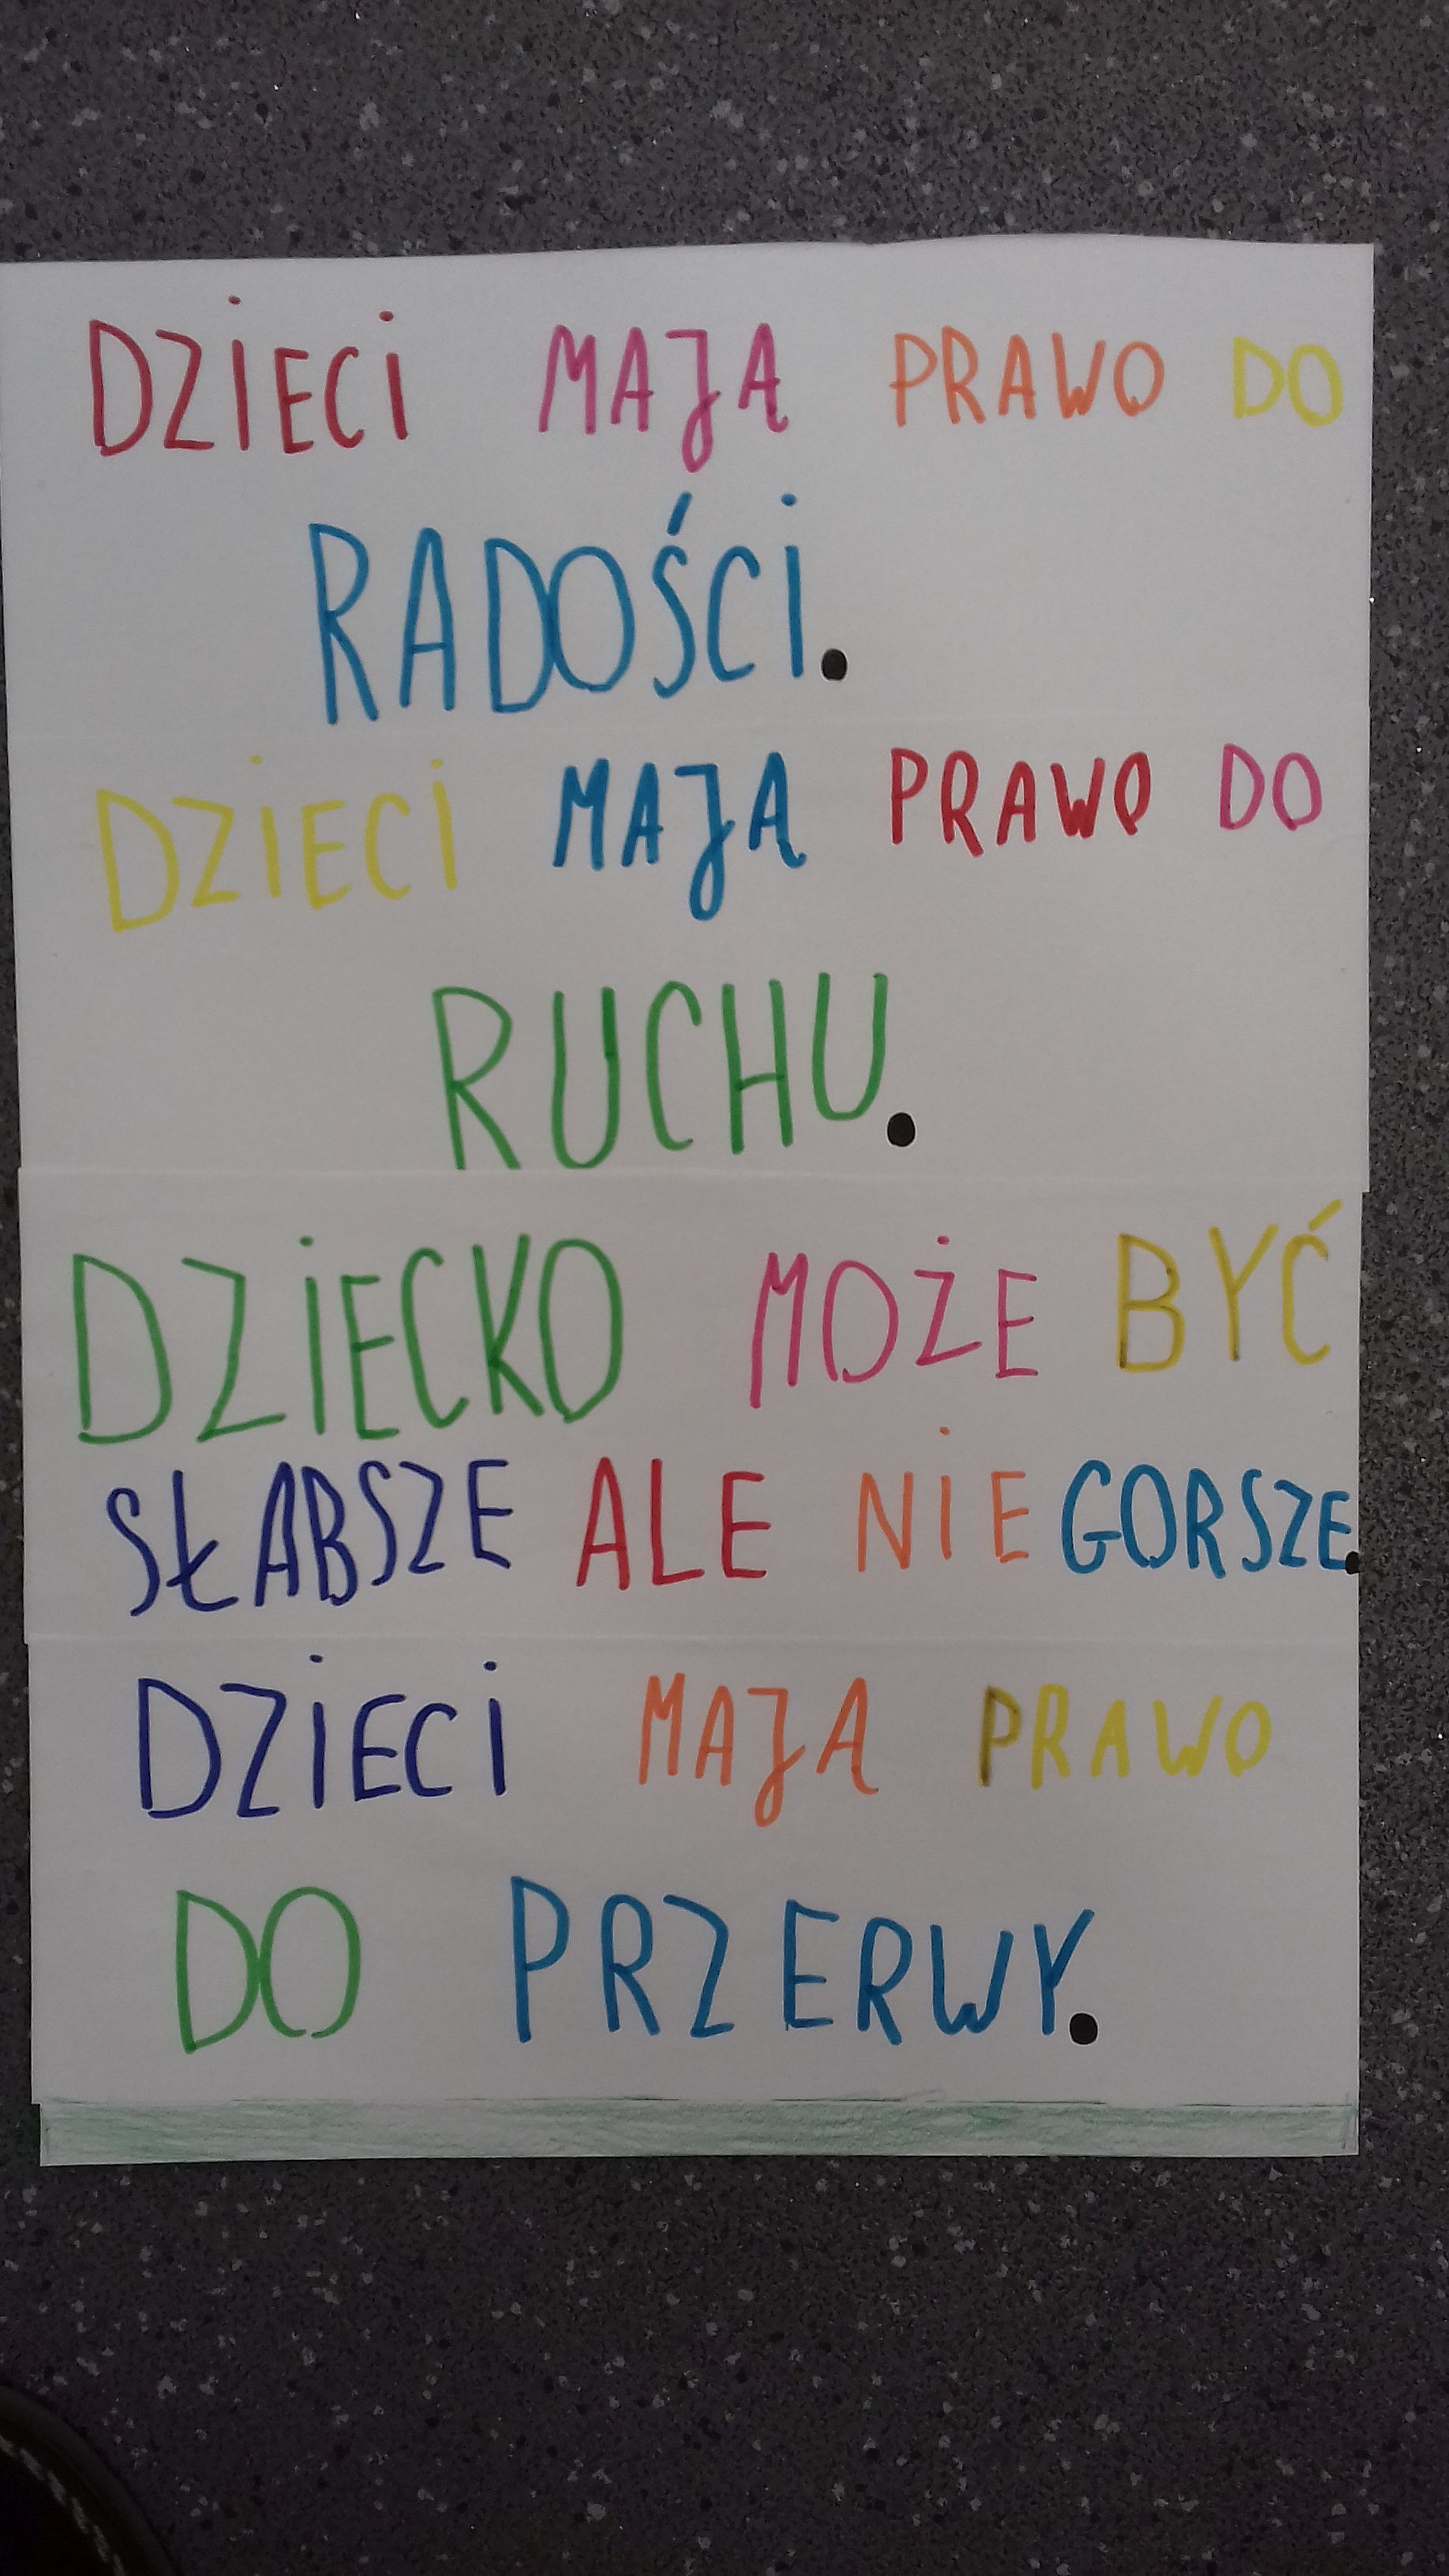 DZIECI MAJĄ PRAWO DO
RADOŚCI.
DZIECI MAJĄ PRAWO DO
RUCHU.
DZIECKO MOŻE BYĆ
SŁABSZE ALE NIE GORSZE.
DZIECI MAJĄ PRAWO
DO PRZERWY.